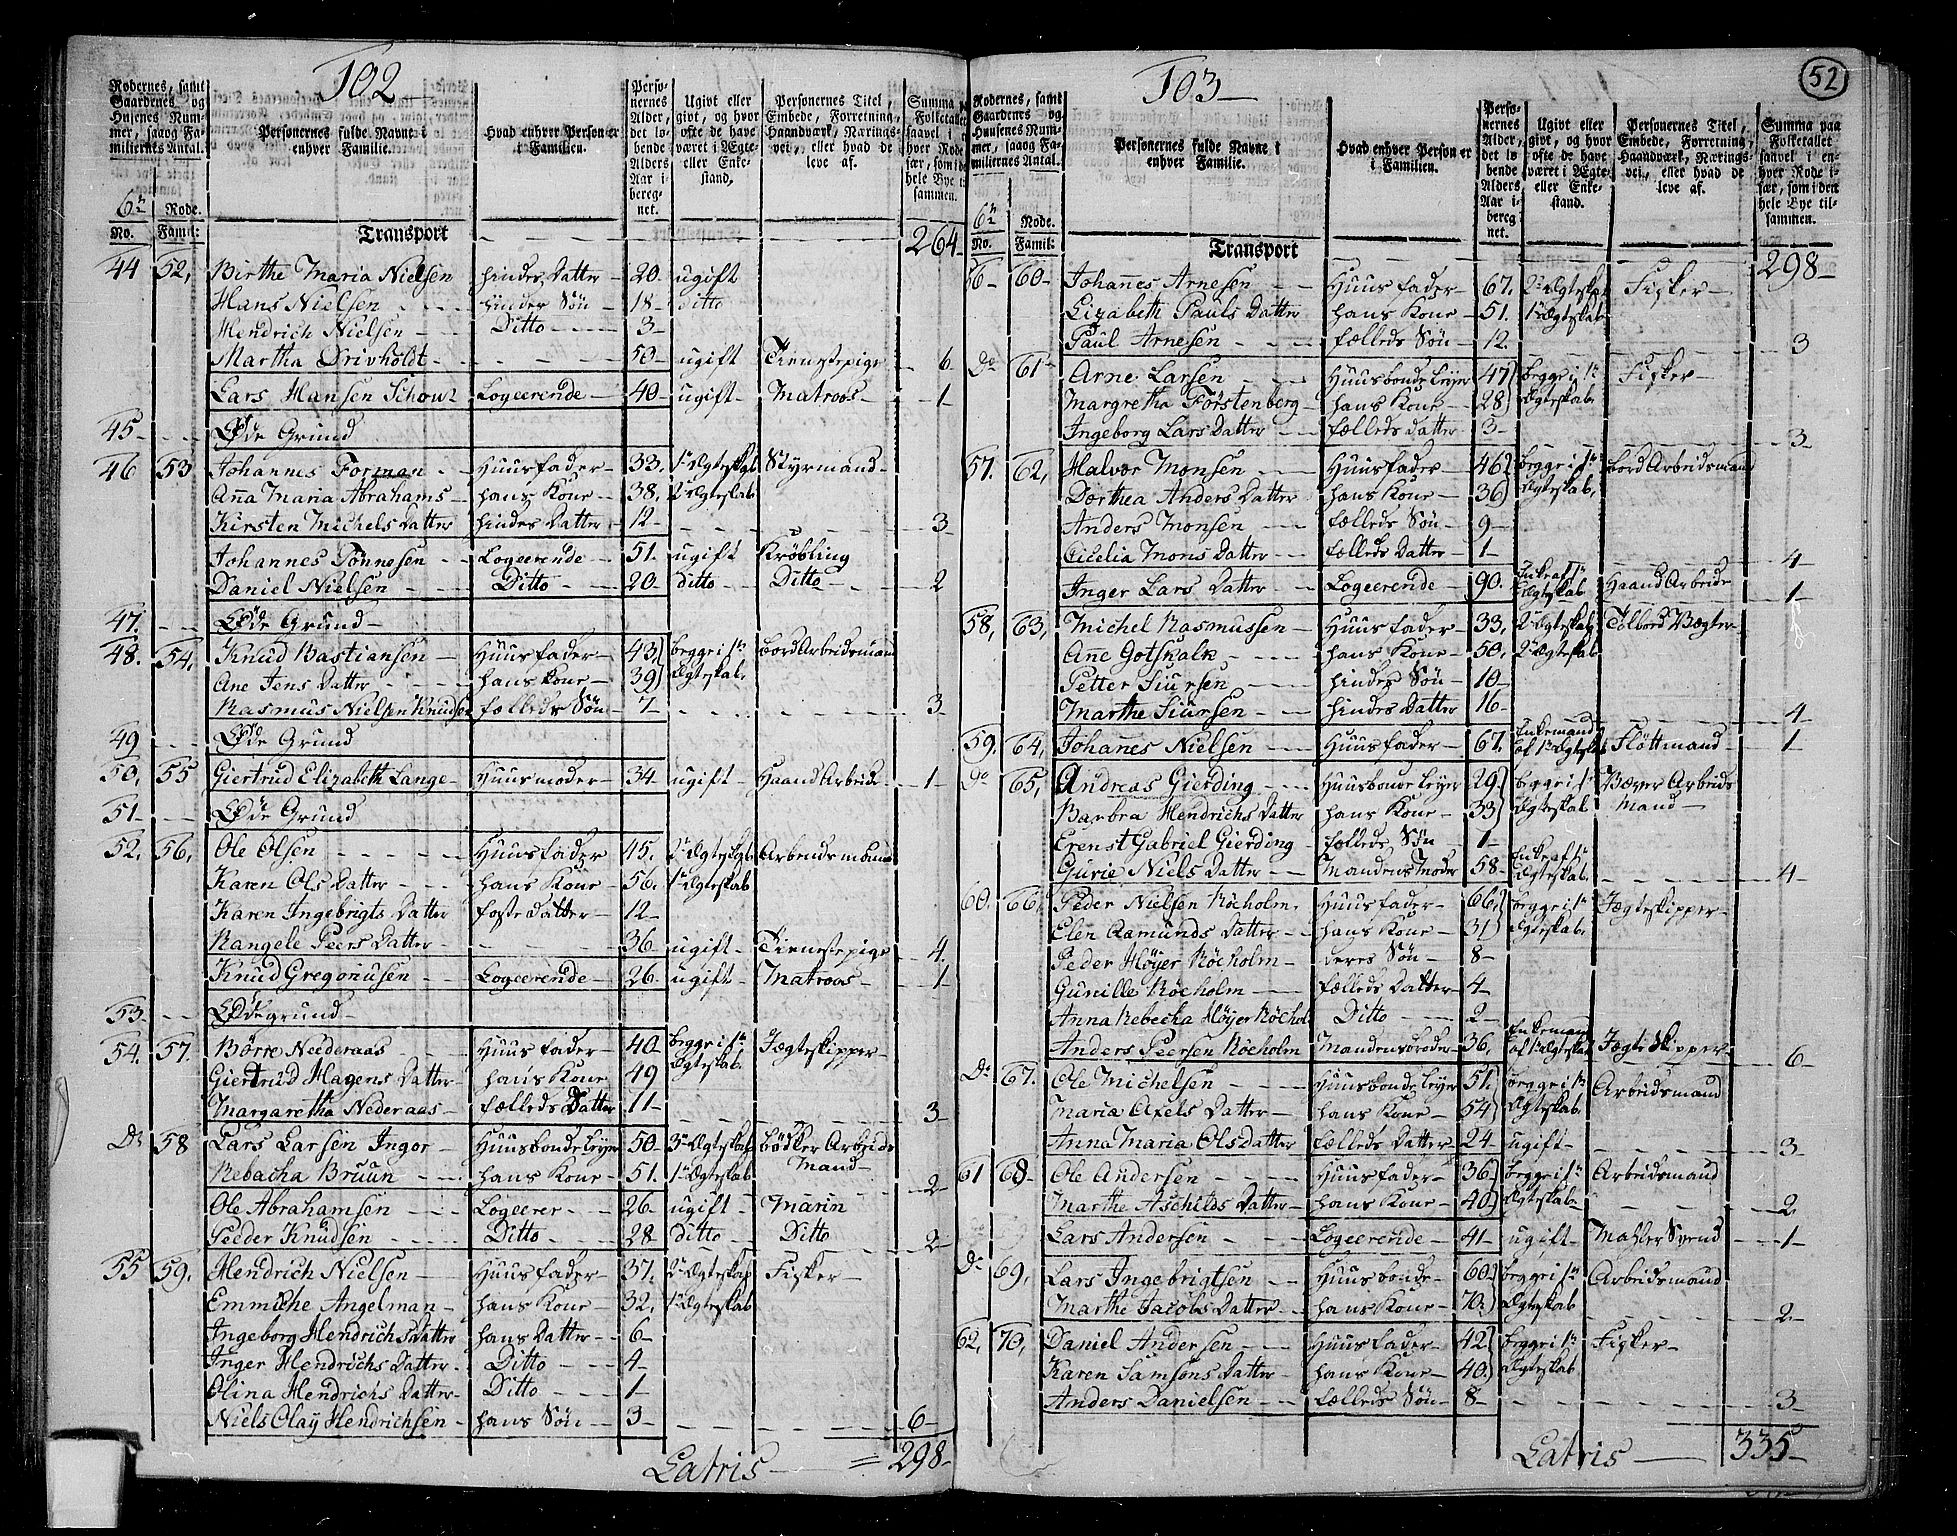 102
Rodernes, samt Gaardenes og Husenes Nummer, saavog Familiernes Antal.
Personernes fulde Navne i enhver Familie.
Hvad enhver Person er i Familien.
Personernes Alder, det løbende Alders Aar iberegnet.
Ugivt eller givt, og hvor ofte de have været i Ægte- eller Enkestand,
Personernes Titel, Embede, Forretning, Haandværk, Næringsvei, eller hvad de leve af.
Summa Folketallet saavel i hver Rode især, som i den hele Bye tilsammen.
6te Rode.
No. Famil:
Transport 264
44 52, Birthe Maria Nielsen hindes Datter 20 ugift
Hans Nielsen hindes Søn 18 ditto
Hendrich Nielsen Ditto 3
Martha Drivholdt 50 ugift Tienestepige 6
Lars Hansen Schouv Logeerende 40 ugift Matroos 1
45 Øde Grund
46 53 Johannes Forman Huusfader 33. 1te Ægteskab Styrmand
Anna Maria Abrahams hans Kone 38, 2de Ægteskab
Kirsten Michels Datter hindes Datter 12 3
Johannes Tønnesen Logeerende 51. ugift Krøbling
Daniel Nielsen Ditto 20. ditto Ditto 2
47. Øde Grund
48. 54, Knud Bastiansen Huusfader 43) begge i 1te bord Arbeidsmand
Ane Jens Datter hans kone 39) Ægteskab.
Rasmus Nielsen Knudsen fælleds Søn 7 3
49 Øde Grund
50, 55 Giertrud Elizabeth Lange Huusmoder 34 ugift Haand Arbeide 1
51. Øde Grund
52, 56, Ole Olsen Huusfader 45. 2de Ægteskab Arbeidsmand
Karen Ols Datter hans Kone 56. 1te Ægteskab
Karen Ingebrigts Datter foste Datter 12
Rangele Peers Datter 36 ugift Tienestepige 4.
Knud Gregoriusen Logeerende 26. ugift Matroos 1
53. Ødegrund
54. 57. Børre Nederaas Huusfader 40 begge i 1te Jægteskipper
Giertrud Hagens Datter hans Kone 49 Ægteskab.
Margaretha Nederaas fælleds Datter 11 3
Do 58 Lars Larsen Ingor Huusbonde leyer 50 3de Ægteskab bødker Arbeids
Rebacha Bruun hans Kone 51. 1te Ægteskab Mand 2
Ole Abrahamsen Logeerer 26 ugift Marin
Peder Knudsen Ditto 28 ditto Ditto 2
55 59. Hendrich Nielsen Huusfader 37. 2de Ægteskab Fisker
Emmiche Angelman hans Kone 32, 1te Ægteskab
Ingeborg Hendrichs Datter hans Datter 6
Inger Hendrichs Datter Ditto 4
Olina Hendrichs Datter Ditto 1
Niels Olay Hendrichsen hans Søn 3 6
Latris 298
52
103
Rodernes, samt Gaardenes og Husenes Nummer, saavog Familiernes Antal.
Personernes fulde Navne i enhver Familie.
Hvad enhver Person er i Familien.
Personernes Alder, det løbende Alders Aar iberegnet.
Ugivt eller givt, og hvor ofte de have været i Ægte- eller Enkestand.
Personernes Titel, Embede, Forretning, Haandværk, Næringsvei, eller hvad de leve af.
Summa paa Folketallet saavel i enhver Rode især, som i den hele Bye tilsammen.
6te Rode.
No. Famil:
Transport 298
56 60 Johanes Arnesen Huusfader 67. 2de Ægteskab Fisker
Lizabeth Pauls Datter hans Kone 51. 1te Ægteskab
Paul Arnesen fælleds Søn 12. 3
Do 61 Arne Larsen Huusbonde leyer 47) begge i 1te Fisker
Margretha Førstenberg hans Kone 28) Ægteskab.
Ingeborg Lars Datter fælleds datter 3 3
57. 62, Halvor Monsen Huusfader 46) begge i 1te bord Arbeidsmand
Dorthea Anders Datter hans Kone 36) Ægteskab.
Anders Monsen fælleds Søn 9
Cicelia Mons Datter fælleds Datter 1 4
Inger Lars Datter Logeerende 90. Enke af 1te Ægteskab Haand Arbeide 1
58, 63, Michel Rasmussen Huusfader 33, 2de Ægteskab Tolbod Vægter
Ane Gotskalk hans Kone 50, 2de Ægteskab
Petter Siursen hindes Søn 10
Marthe Siursen hindes Datter 16 4
59, 64, Johanes Nielsen Huusfader 67. Enkemand af 1te Ægteskab Fløttmand 1
Do 65, Andreas Gierding Huusbonde leyer 29) begge i 1te Bæver Arbeids
Barbra Hendrichs Datter hans Kone 33) Ægteskab Mand
Erenst Gabriel Gierding fælleds Søn 1
Gurie Niels Datter Mandens Moder 58 Enke af 1te Ægteskab. 4
60. 66, Peder Nielsen Røcholm Huusfader 66) begge i 1te Jægteskipper
Elen Ramunds Datter hans Kone 31) Ægteskab.
Peder Høyer Røcholm deres Søn 8
Gunille Røcholm fælleds Datter 4
Anna Rebecka Høyer Røcholm Ditto 2
Anders Peersen Røcholm Mandens broder 36, Enkemand af 1te Ægteskab Jægteskipper 6
Do 67. Ole Michelsen Huusbonde leyer 51) begge i 1te Arbeidsmand
Maria Axels Datter hans Kone 54) Ægteskab.
Anna Maria Olsdatter fælleds Datter 24 ugift 3
61 68 Ole Andersen Huusfader 36) begge i 1te Arbeidsmand
Marthe Aschilds Datter hans Kone 40) Ægteskab 2
Lars Andersen Logeerende 41 ugift Mahler Svend 1
Do 69, Lars Ingebrigtsen Huusbonde 60) begge i 1te Arbeidsmand
Marthe Jacobs Datter hans Kone 70) Ægteskab 2
62, 70, Daniel Andersen Huusfader 42) begge i 1te Fisker
Karen Samsons Datter hans Kone 40) Ægteskab
Anders Danielsen fælleds Søn 8 3
Latris 335